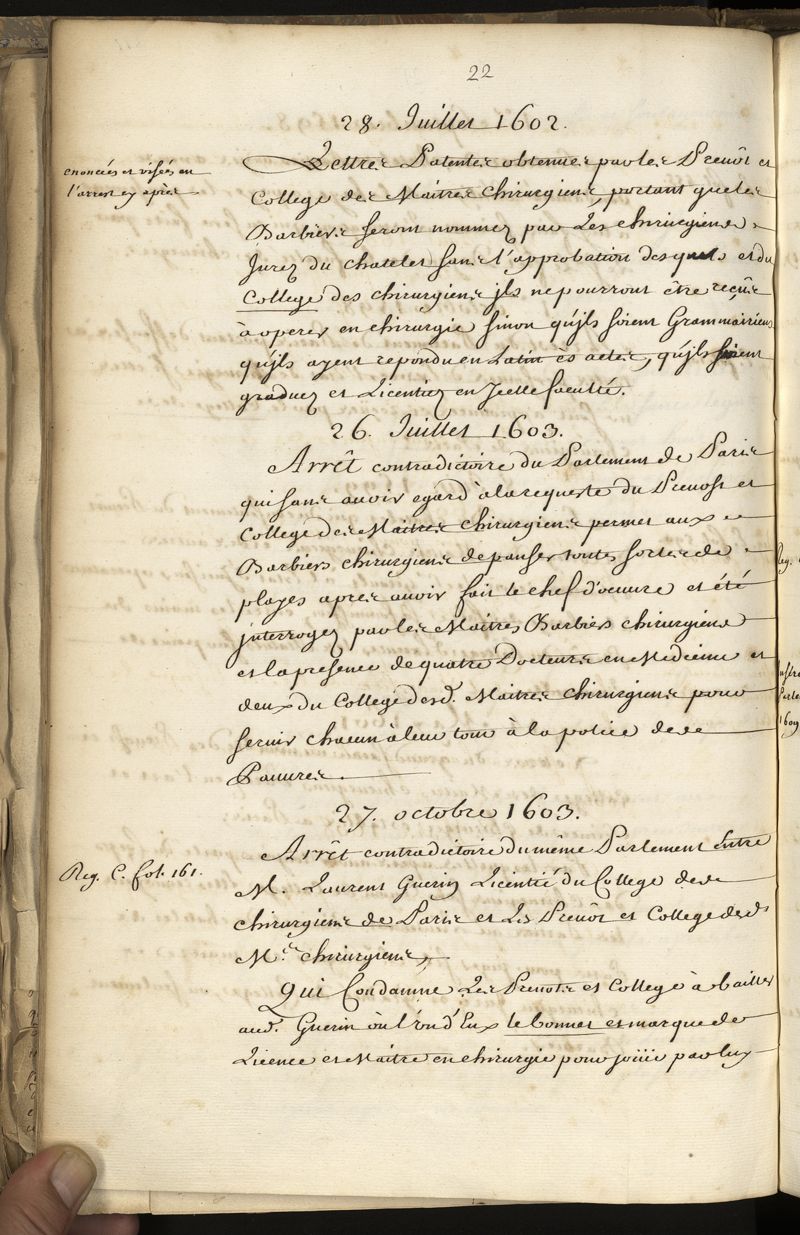 22
28. Juillet 1602.
enoncées et visées en
l'arrest cy après
Lettres Patentes obtenues par les Prevôt et
College des Maitres Chirurgiens, portant que les
Barbiers seront nommez par Les chirurgiens
Jurez du chatelet sans l'approbation desquels et du
College des chirurgiens jls ne pourront être reçûs
à operer en chirurgie sinon qu'jls soient Grammairiens
qu'jls ayent repondu en Latin ès actes, qu'jls soient
graduez et Licentiez en Jcelle faculté.
26. Juillet 1603.
Arrêt contradictoire du Parlement de Paris
qui sans avoir egard à la requeste du Prevost et
College des Maitres Chirurgiens permet aux
Barbiers chirurgiens de panser toutes sortes de
playes apres avoir fait le chef d'oeuvre et été
jnterrogez par les Maitres Barbiers chirurgiens
et la presence de quatre Docteurs en Medecine et
deux du College desd. Maitres chirurgiens pour
servir chacun à leur tour à la police des
Pauvres.
27. octobre 1603.
Reg. C. fol. 161.
Arrêt contradictoire du même Parlement Entre
M. Laurent Guerin Licentié du College des
chirurgiens de Paris et Les Prevôt et College desd.
M.es chirurgiens,
Qui Condamne Les Prevots et College à bailler
aud. Guerin où l'un d'Eux le bonnet et marque de
Licence et Maitre en chirurgie pour joüir par luy
Reg.
1609